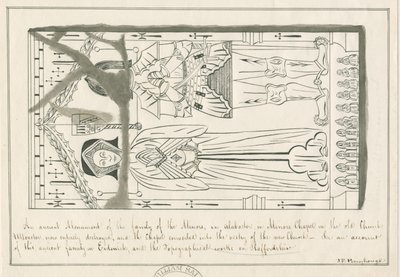 An ancient Monument of the family of the Minors, in alabaster in Minors Chapel in the old Church
Uttoxeter now entirely destroyed, and the Chapel converted into the vestry of the new Church — See an account
of this ancient family in Erdeswick, and the Topographical works on Staffordshire
WILLIAM SALT